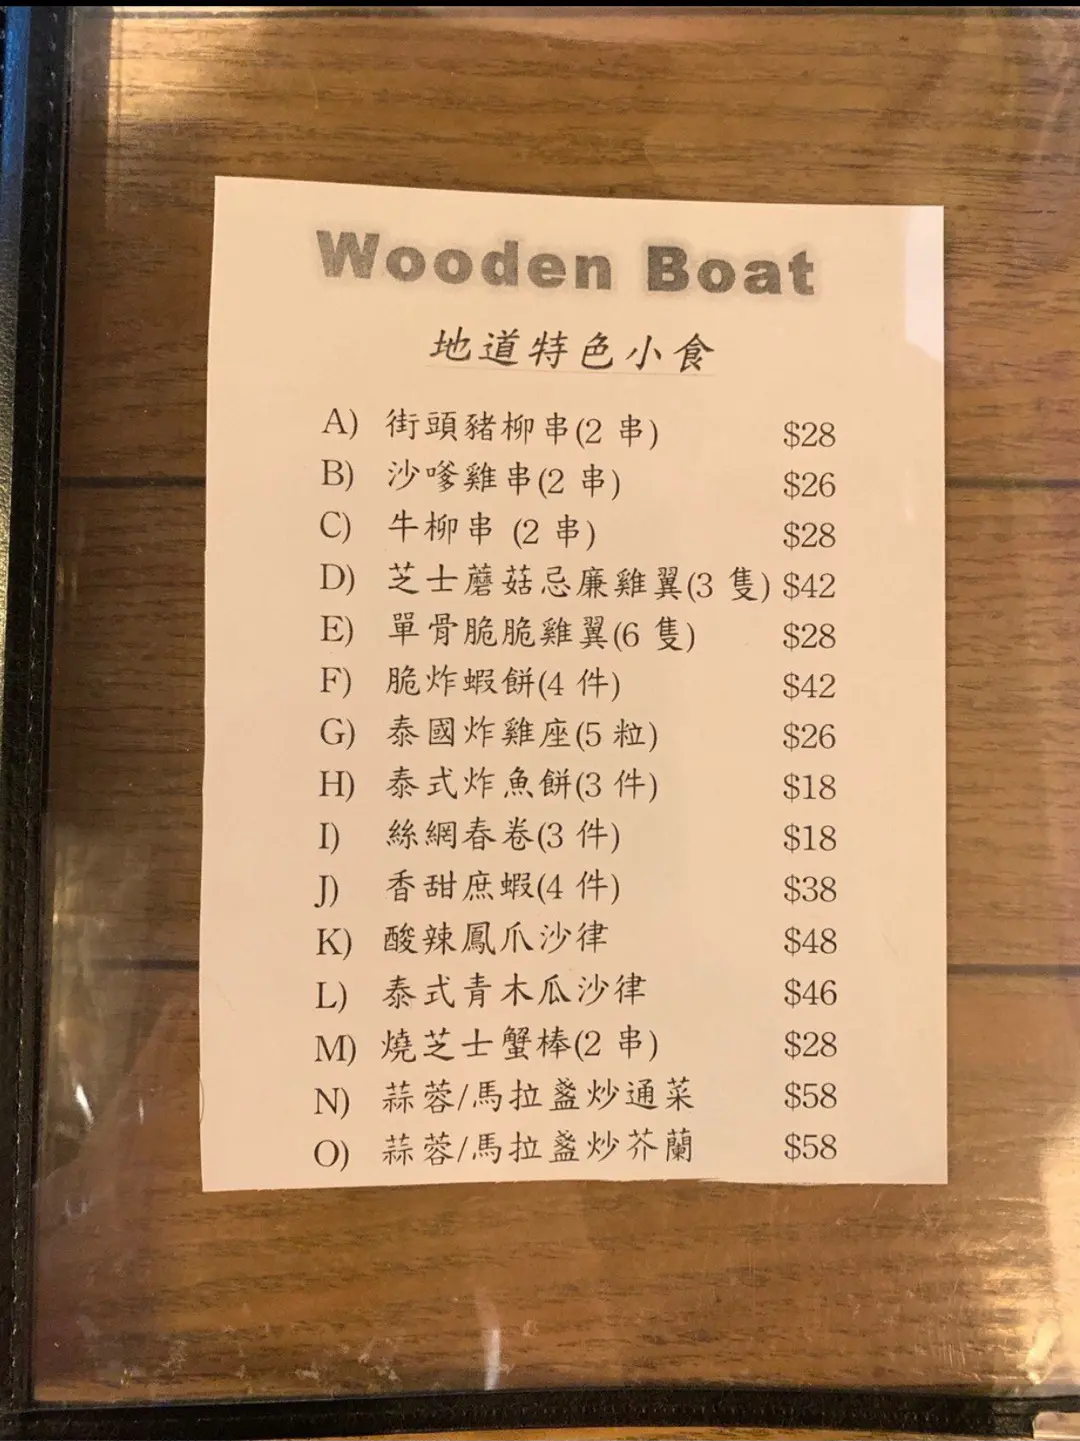 Wooden Boat
地道特色小食
A) 街頭豬柳串(2 串) $28
B) 沙嗲雞串(2 串) $26
C) 牛柳串 (2 串) $28
D) 芝士蘑菇忌廉雞翼(3 隻) $42
E) 單骨脆脆雞翼(6 隻) $28
F) 脆炸蝦餅(4 件) $42
G) 泰國炸雞座(5 粒) $26
H) 泰式炸魚餅(3 件) $18
I) 絲網春卷(3 件) $18
J) 香甜庶蝦(4 件) $38
K) 酸辣鳳爪沙律 $48
L) 泰式青木瓜沙律 $46
M) 燒芝士蟹棒(2 串) $28
N) 蒜蓉/馬拉盞炒通菜 $58
O) 蒜蓉/馬拉盞炒芥蘭 $58